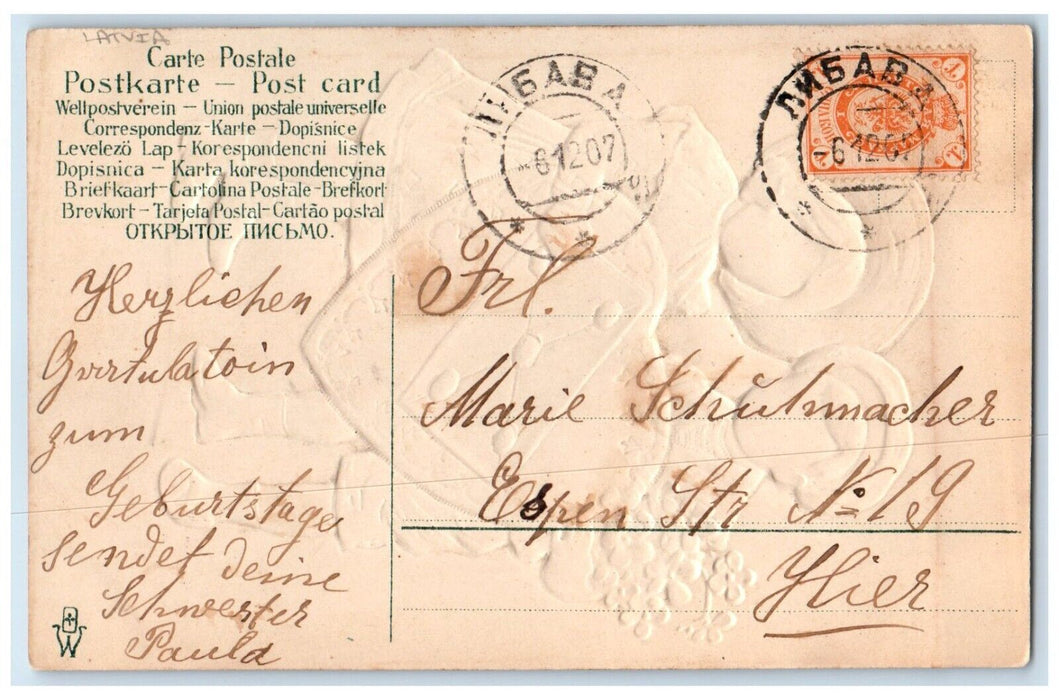 LATVIA
Carte Postale
Postkarte — Post card
Weltpostverein — Union postale universelle
Correspondenz-Karte — Dopisnice
Levelező Lap — Korespondencni listek
Dopisnica — Karta korespondencyjna
Briefkaart — Cartolina Postale - Brefkort
Brevkort — Tarjeta Postal - Cartão postal
ОТКРЫТОЕ ПИСЬМО.
ЛИБАВА
-6 12 07
ЛИБАВА
-6 12 07
Herzlichen
Gvrtulatoin
zum
Geburtstage
sendet deine
Schwester
Paula
Frl.
Marie Schuhmacher
Espen Str № 19
Hier